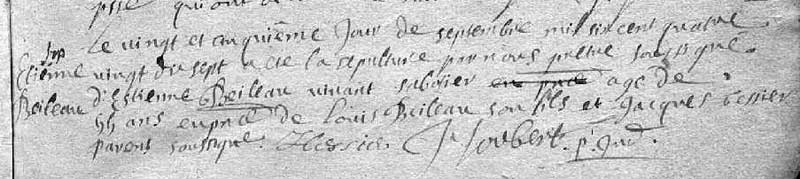 Sep Le vingt et cinquiéme Jour de septembre mil six cent quatre
Etiénne vingt dix sept a ete la sepulture par nous prètre soussigné.
Beileau d'Estienne Beileau vivant sabotier en pnce age de
55 ans enpnce de Louis Beileau son fils et Jacques tessier
parent soussigné. JTessier J Joubert. p.